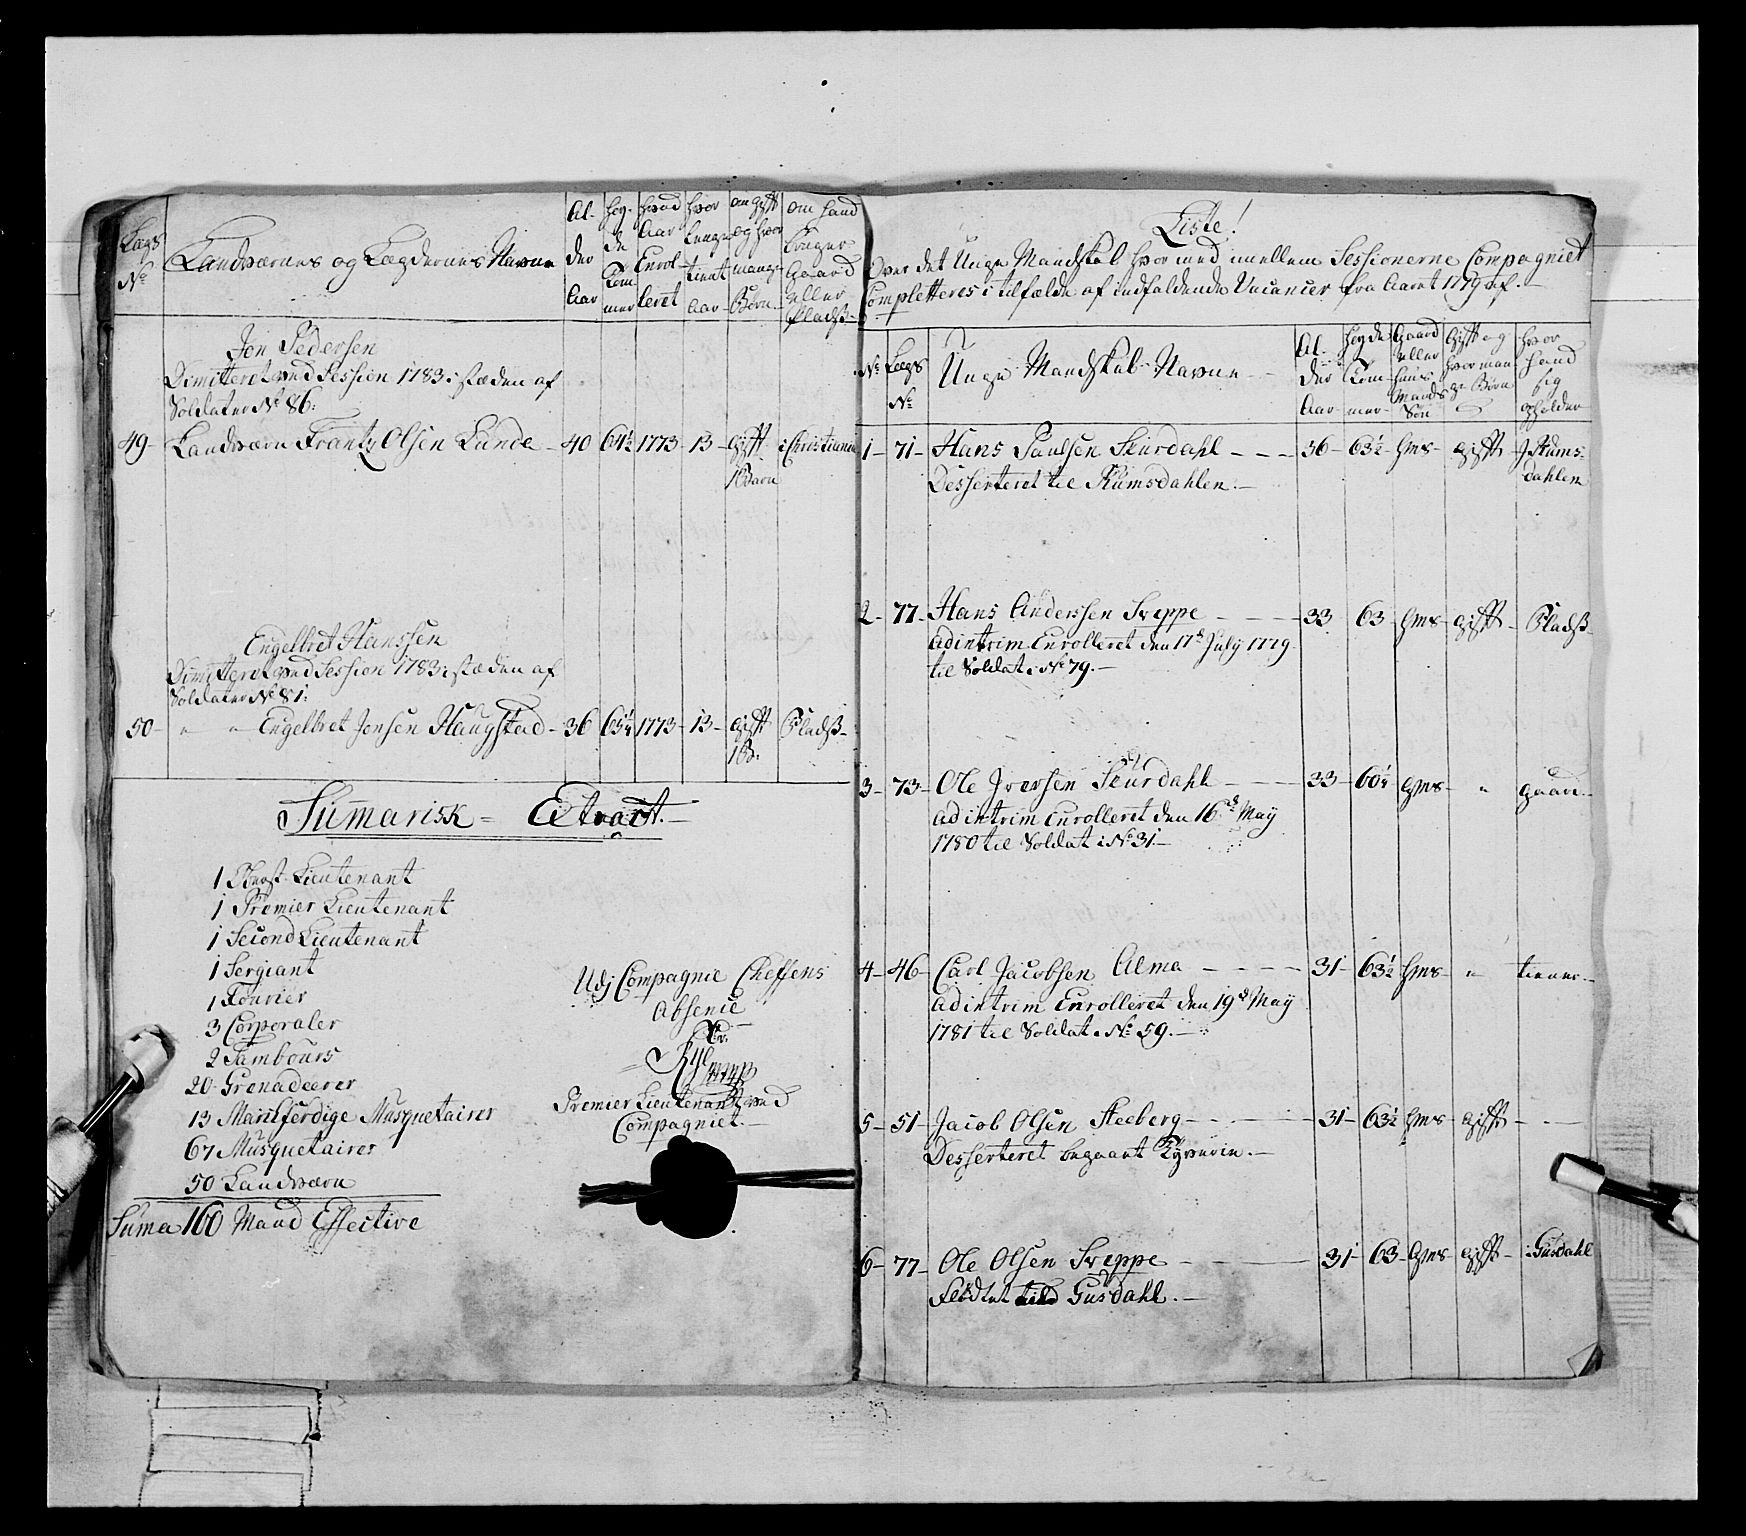 Lægs
No
Landværnes og Lægdernes Navne
Al-
der
Aar
Høy-
de
Tom
mer
hvad
Aar
Enrol-
leret
hvor
længe
tient
Aar
om gift
og hvor
mange
Børn
om hand
bruger
Gaard
eller
Pladß
Jon Pedersen
Dimitteret ved Session 1783 i stæden af
Soldater No 86:
49 Landværn Frantz Olsen Lunde 40 64½ 1773 13 gift i Christiania
1 Barn
Engelbret Hanssen
Dimitteret ved Session 1783 i stæden af
Soldater No 81:
50 " " Engelbret Jonsen Haugstad 36 65¼ 1773 13 gift Pladß
1 B:
Sumarisk Extract.
1 Obrist Lieutenant
1 Premier Lieutenant
1 Second Lieutenant
1 Sergiant
1 Fourier
3 Corporaler
2 Tambours
20 Grenadeerer
13 Marchferdige Musquetairer
67 Musquetairer
50 Landværn
Suma 160 Mand Effective
Udj Compagnie Cheffens
Absence
Premier Lieutenant ved
Compagniet.
Liste!
Over det Unge Mandskab hvormed imellem Sessionerne Compagniet
Completteres i tilfælde af indfaldende Vacancer fra Aaret 1779 af.
No
Lægs
No
Unge Mandskab Navne
Al-
der
Aar
Høyde
Tom-
mer
Gaard
eller
Huus
Mands
Søn
Gift og
hvor man-
ge Børn
hvor
hand
sig
opholder
1 71 Hans Paulsen Skurdahl 36 63½ hms gift J Rums-
dahlen
Desserteret til Rumsdahlen.
2 77 Hans Anderssen Sveppe 33 63 hms gift Pladß
Ad intrim Enrolleret den 17d July 1779
til Soldat i No 79.
3 73 Ole Jversen Skurdahl 33 60¼ gms " gaard
Ad intrim Enrolleret den 16d May
1780 til Soldat i No 31
4 46 Carl Jacobsen Alma 31 63½ hms " tiener
Ad intrim Enrolleret den 19d May
1781 til Soldat i No 59.
5 51 Jacob Olsen Steeberg 31 63½ hms gift
Desserteret begaaet Tyverie.
6 77 Ole Olsen Sveppe 31 63 hms gift i Gusdahl
Flødtet til Gusdahl.